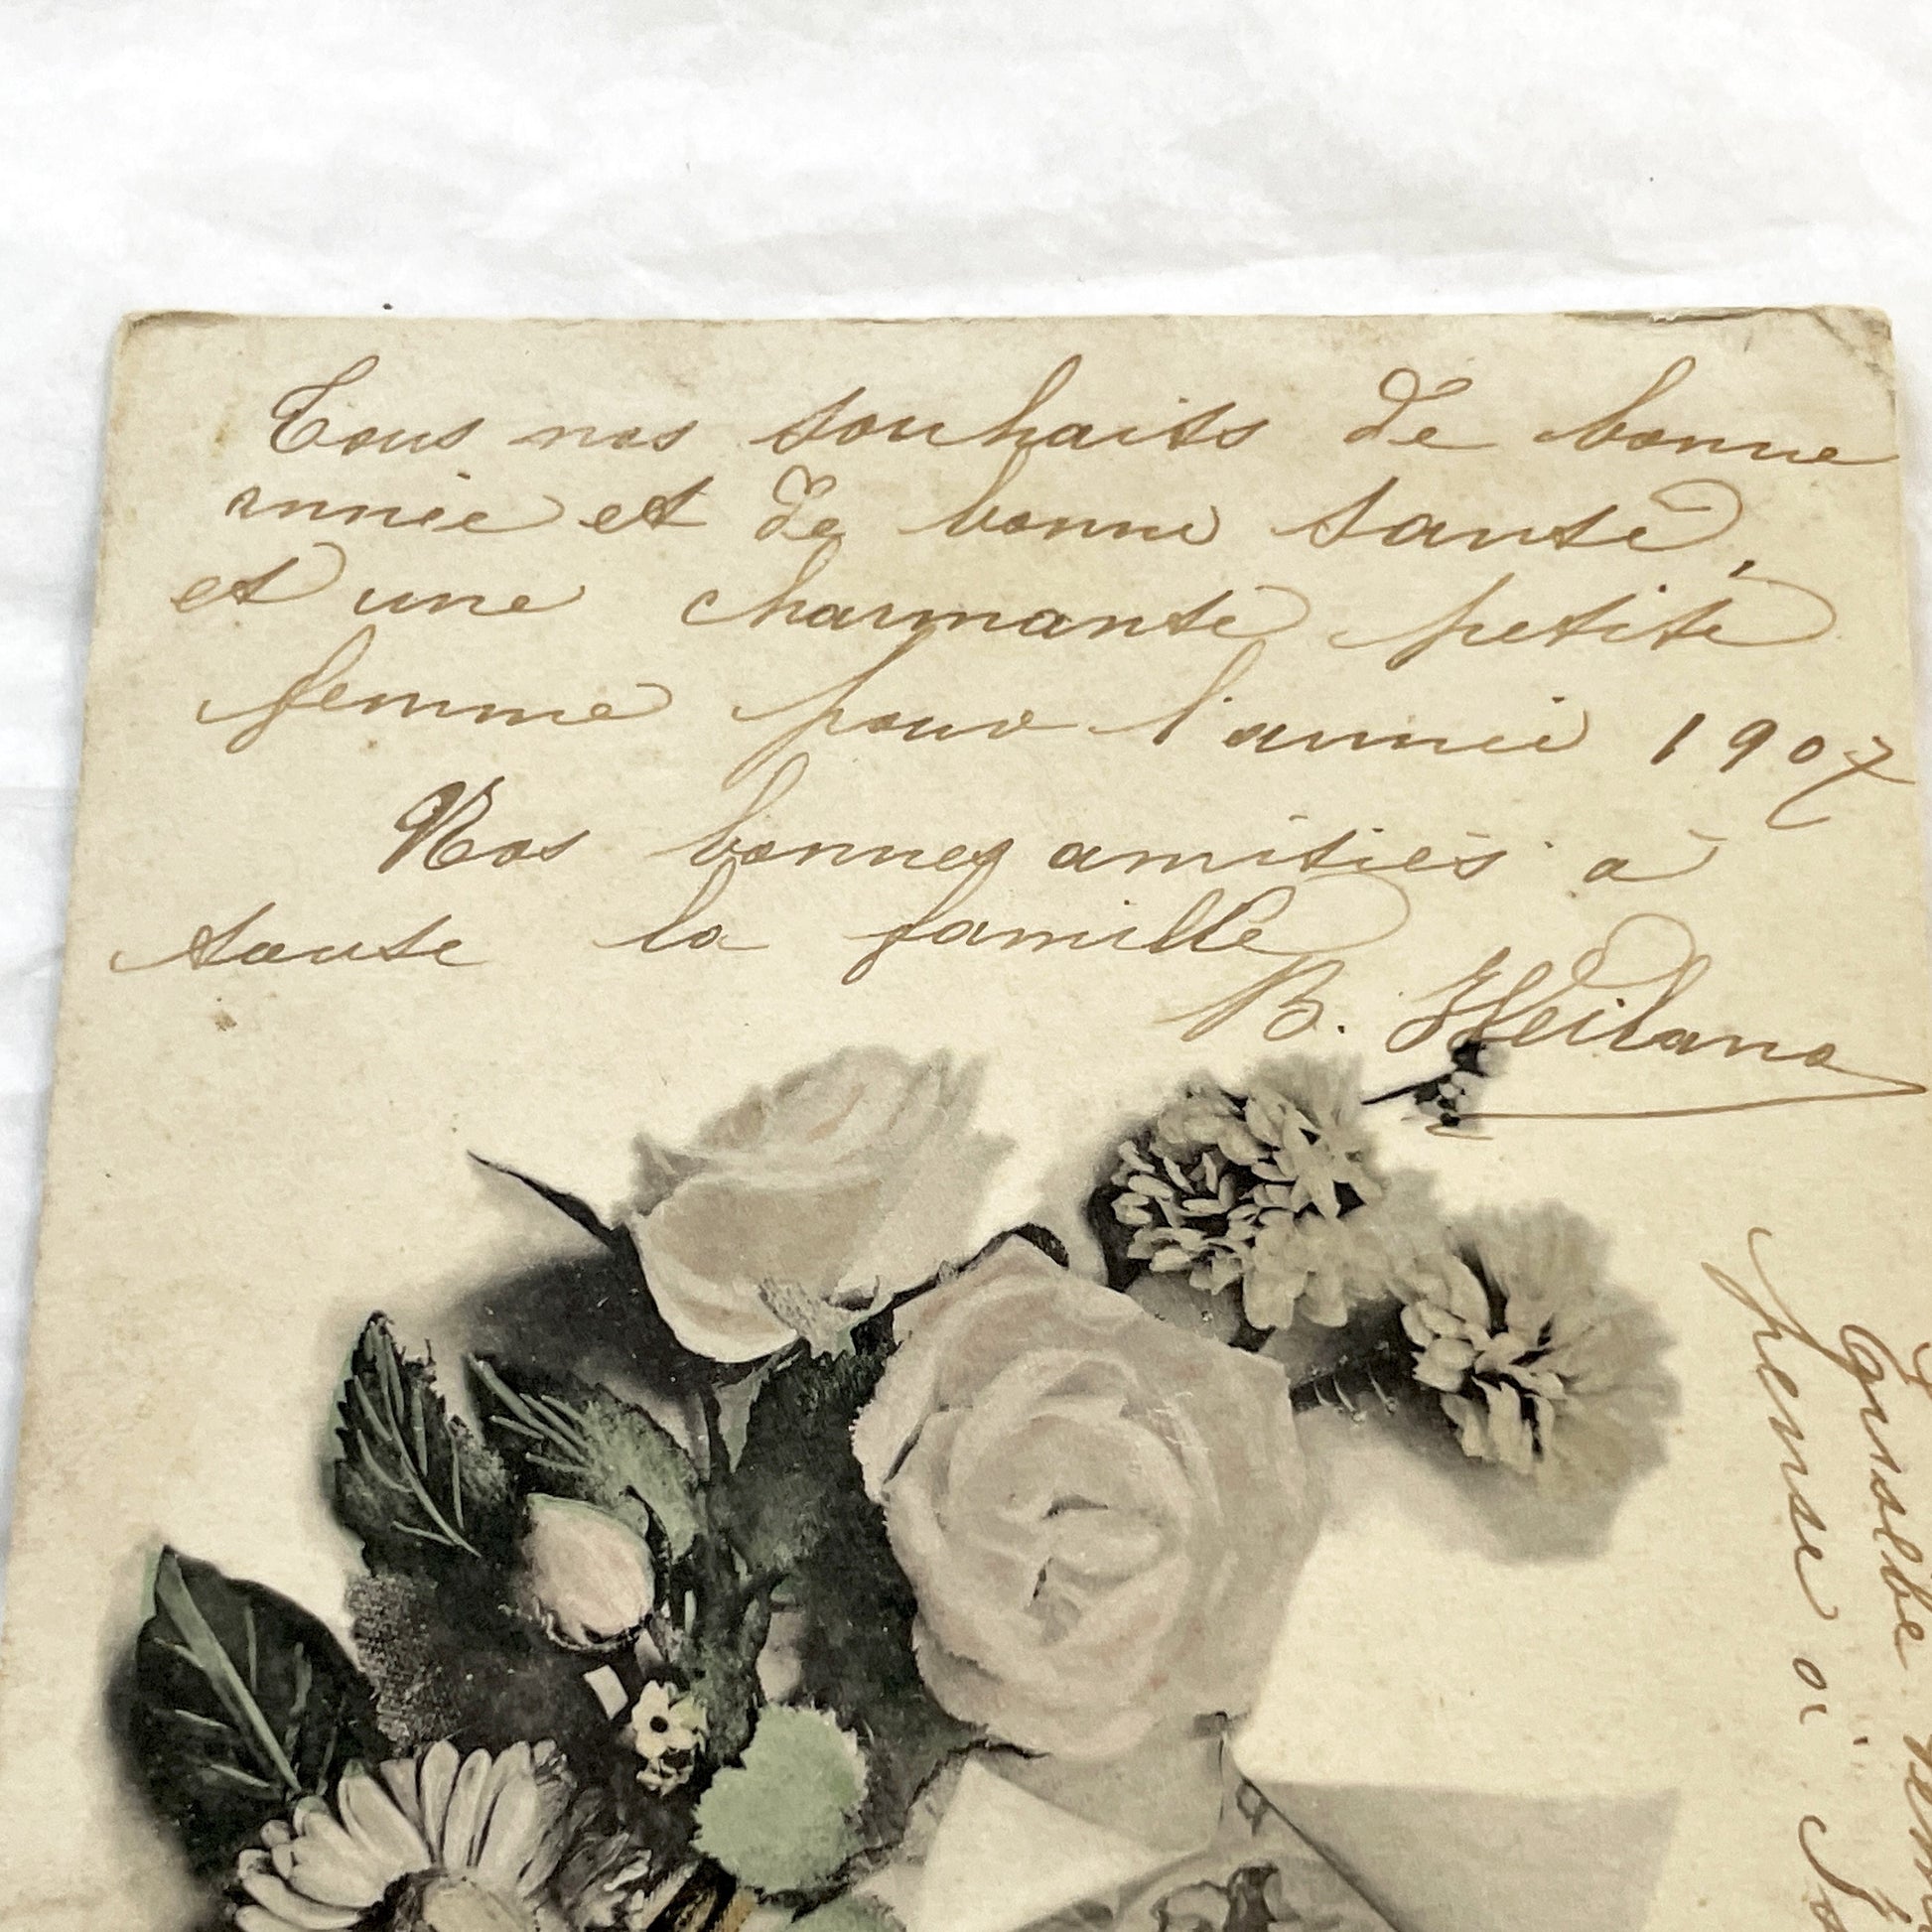 Tous nos souhaits de bonne
année et de bonne santé,
et une charmante petite
femme pour l'année 1907
Nos bonnes amitiés à
toute la famille
B. Weiland
pense à